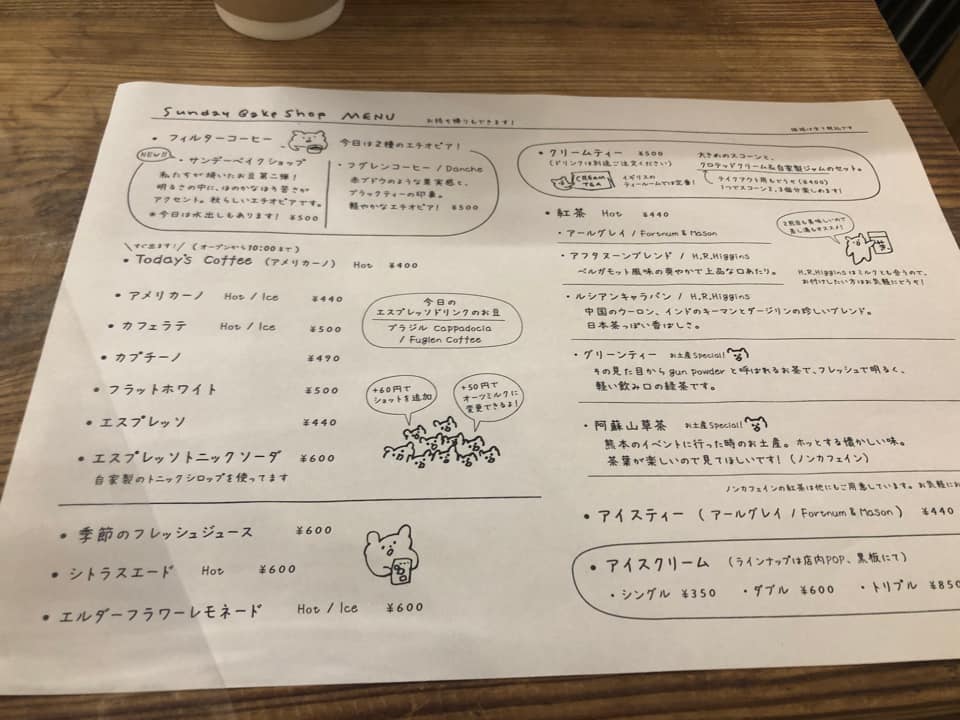 Sunday Bake Shop MENU
お持ち帰りもできます!
価格は全て税込です
・フィルターコーヒー
今日は2種のエチオピア!
NEW!!
・サンデーベイクショップ
私たちが焼いたお豆第二弾!
明るさの中に、ほのかなほろ苦さが
アクセント。秋らしいエチオピアです。
※今日は水出しもあります! ¥500
・フグレンコーヒー / Danche
赤ブドウのような果実感と、
ブラックティーの印象。
軽やかなエチオピア! ¥500
すぐ出ます! (オープンから10:00まで)
・Today's Coffee (アメリカーノ) Hot ¥400
・アメリカーノ Hot / Ice ¥440
・カフェラテ Hot / Ice ¥500
・カプチーノ ¥490
・フラットホワイト ¥500
・エスプレッソ ¥440
・エスプレッソトニックソーダ ¥600
自家製のトニックシロップを使ってます
今日の
エスプレッソドリンクのお豆
ブラジル Cappadocia
/ Fuglen Coffee
+60円で
ショットを追加
+50円で
オーツミルクに
変更できるよ!
・季節のフレッシュジュース ¥600
・シトラスエード Hot ¥600
・エルダーフラワーレモネード Hot / Ice ¥600
・クリームティー ¥500
(ドリンクは別途ご注文ください)
CReam
TEA
イギリスの
ティールームでは定番!
大きめのスコーンと、
クロテッドクリーム&自家製ジャムのセット。
テイクアウト用もどうぞ (¥400)
1つでスコーン2,3個分楽しめます!
・紅茶 Hot ¥440
・アールグレイ / Fortnum & Mason
・アフタヌーンブレンド / H.R.Higgins
ベルガモット風味の爽やかで上品な口あたり。
2煎目も美味しいので
差し湯もオススメ!
H.R.Higginsはミルクとも合うので、
お付けしたい方はお気軽にどうぞ!
・ルシアンキャラバン / H.R.Higgins
中国のウーロン、インドのキーマンとダージリンの珍しいブレンド。
日本茶っぽい香ばしさ。
・グリーンティー お土産Special!
その見た目から gun powder と呼ばれるお茶で、フレッシュで明るく、
軽い飲み口の緑茶です。
・阿蘇山草茶 お土産Special!
熊本のイベントに行った時のお土産。ホッとする懐かしい味。
茶葉が楽しいので見てほしいです! (ノンカフェイン)
ノンカフェインの紅茶は他にもご用意しています。お気軽にお
・アイスティー ( アールグレイ / Fortnum & Mason ) ¥440
・アイスクリーム (ラインナップは店内POP、黒板にて)
・シングル ¥350 ・ダブル ¥600 ・トリプル ¥850